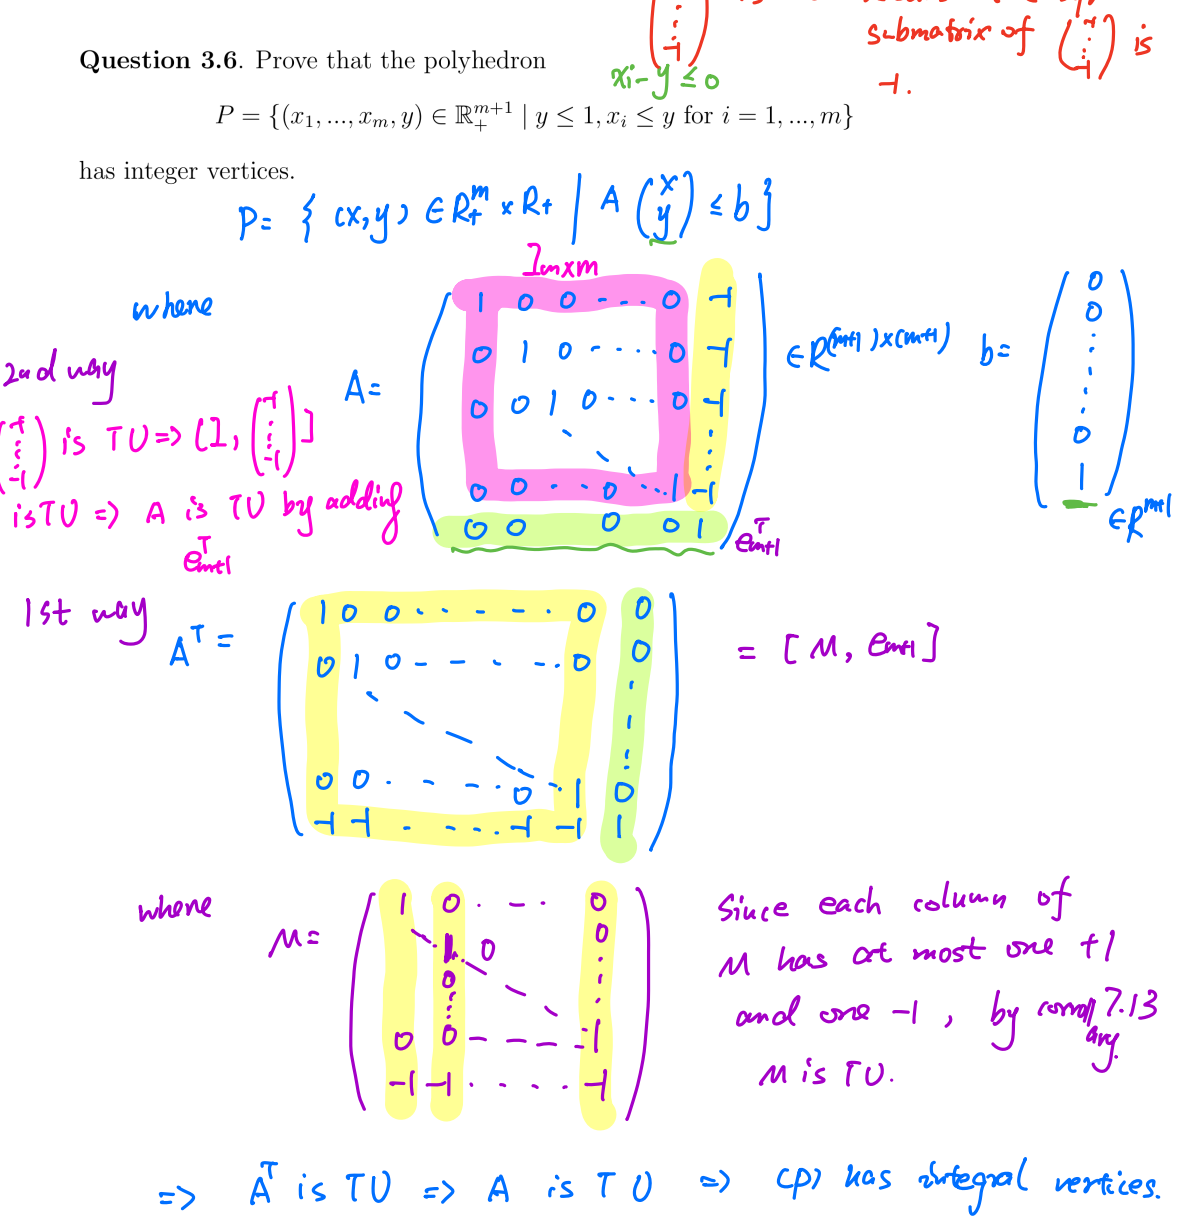 submatrix of ( -1 ⋮ -1 ) is
-1.
xi - y ≤ 0
Question 3.6. Prove that the polyhedron
P = {(x₁, ..., xₘ, y) ∈ ℝ₊ᵐ⁺¹ | y ≤ 1, xᵢ ≤ y for i = 1, ..., m}
has integer vertices.
P = { (x, y) ∈ R₊ᵐ × R₊ | A (x y) ≤ b }
Imxm
where
A = ( 1 0 0 ---- 0 -1
0 1 0 ----- 0 -1
0 0 1 0 ---- 0 -1
0 0 - - 0 -..1 -1
0 0 0 0 1 ) ∈ R^(m+1)x(m+1) b = ( 0 0 ⋮ 0 1 ) ∈ R^m+1
eᵀm+1
2nd way
( -1 ⋮ -1 ) is TU => [I, ( -1 ⋮ -1 )]
is TU => A is TU by adding
eᵀm+1
1st way
Aᵀ = ( 1 0 0 - - - - - 0 0
0 1 0 - - - - - 0 0
0 0 - - - - 0 1 0
-1 -1 - - - - -1 -1 1 ) = [ M, em+1 ]
where
M = ( 1 0 - - - 0
1 0 0
0
0 0 - - - - 1
-1 -1 - - - - -1 )
Since each column of
M has at most one +1
and one -1, by corollary 7.13
M is TU.
=> Aᵀ is TU => A is TU => (P) has integral vertices.